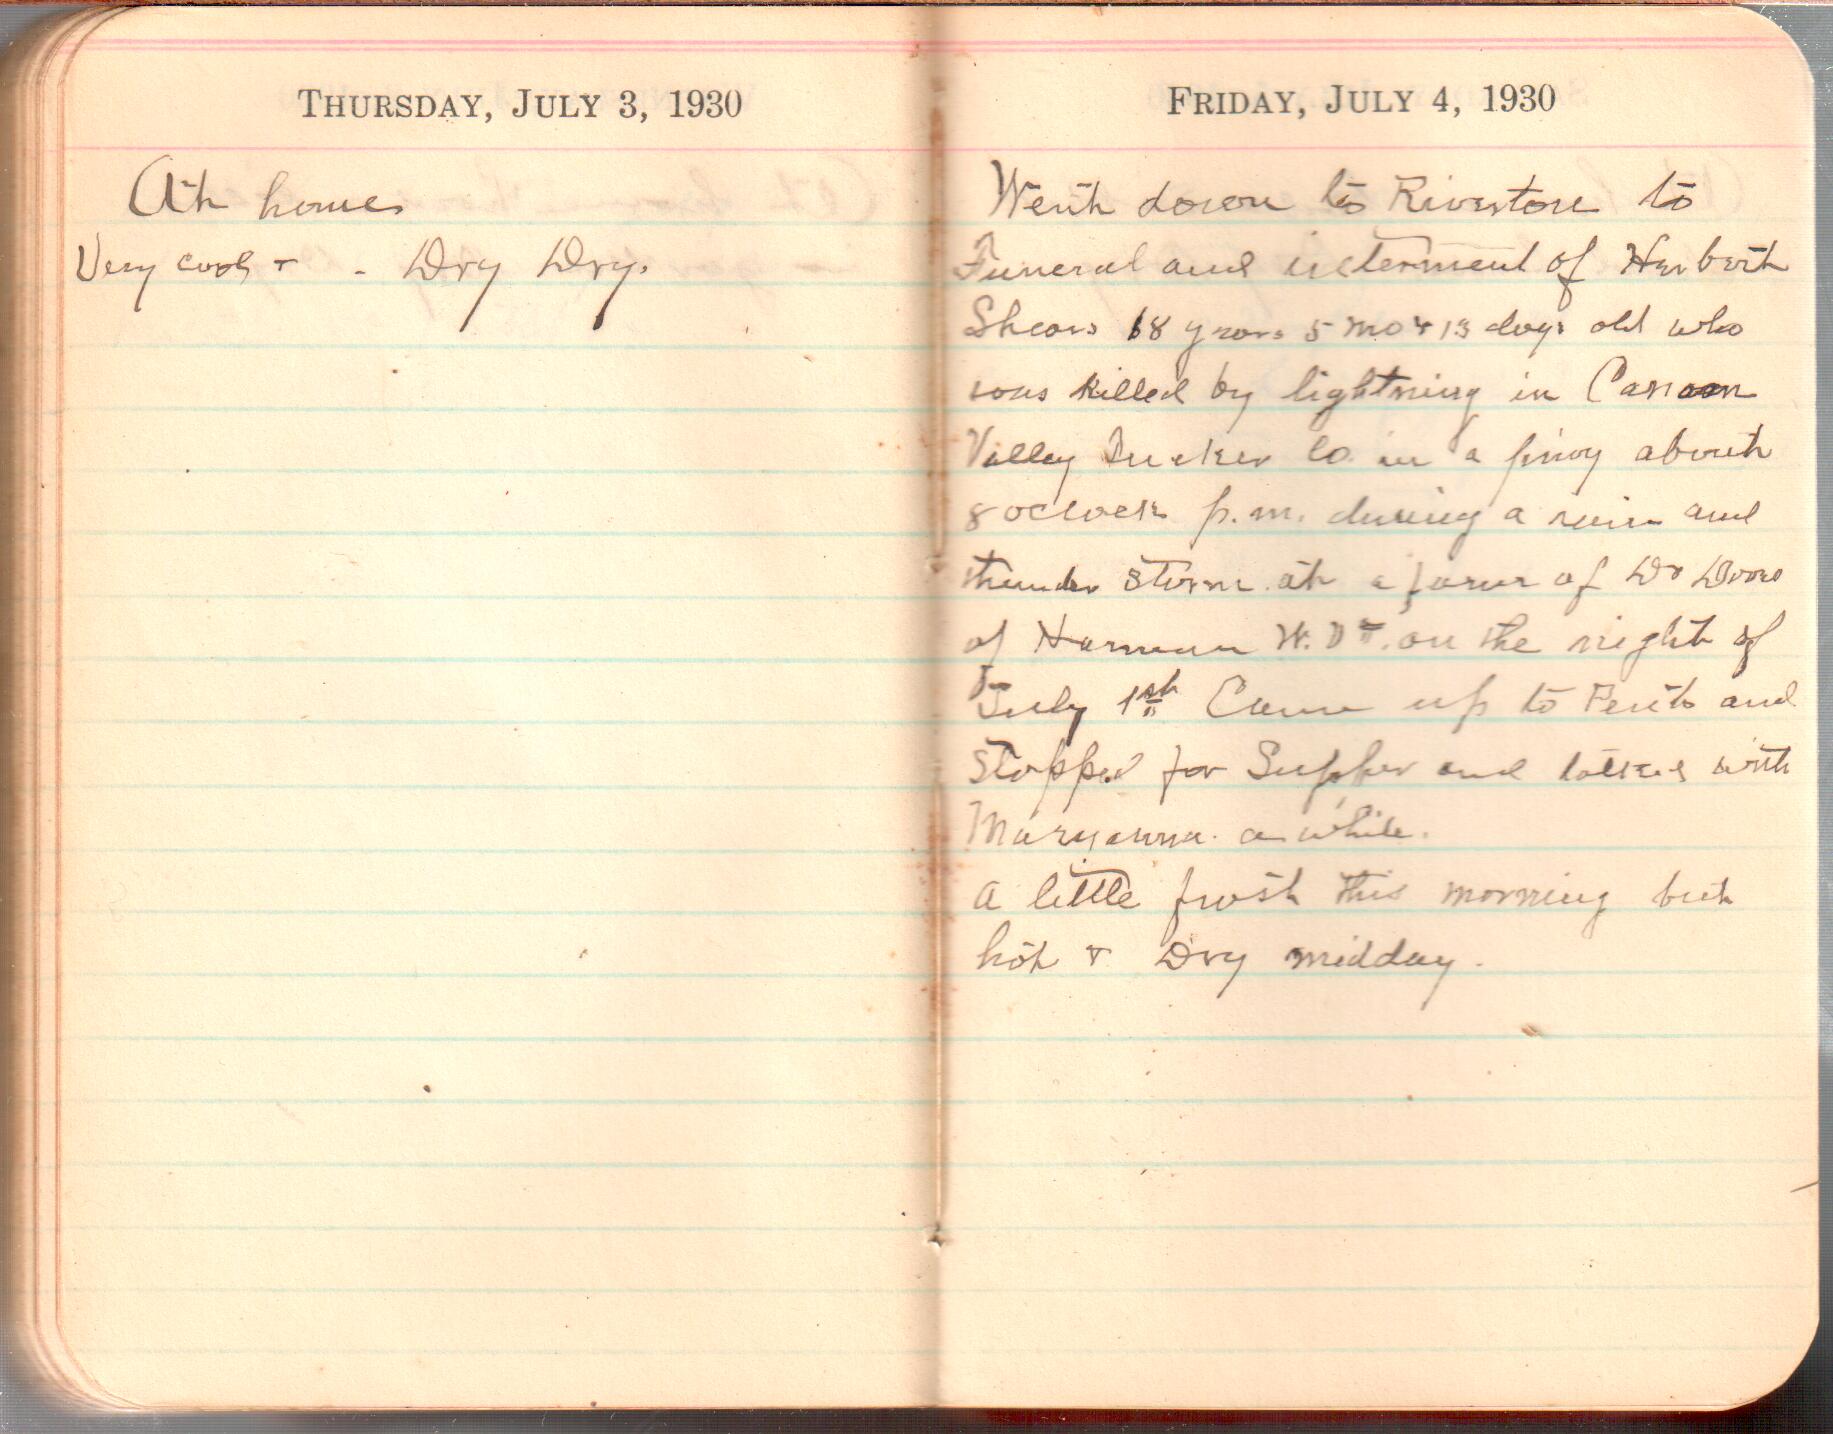 THURSDAY, JULY 3, 1930
At home
Very cool & - Dry Dry.
FRIDAY, JULY 4, 1930
Went down to Riverton to
Funeral and interment of Herbert
Shears 18 years 5 mo & 13 days old who
was killed by lightning in Canaan
Valley Tucker Co. in a about
8 oclock p.m. during a rain and
thunder storm at a farm of Dr
of Harman W. Va. on the night of
July 1st Came up to and
stopped for Supper and talked with
Maryanna a while.
a little frost this morning but
hot & Dry midday.